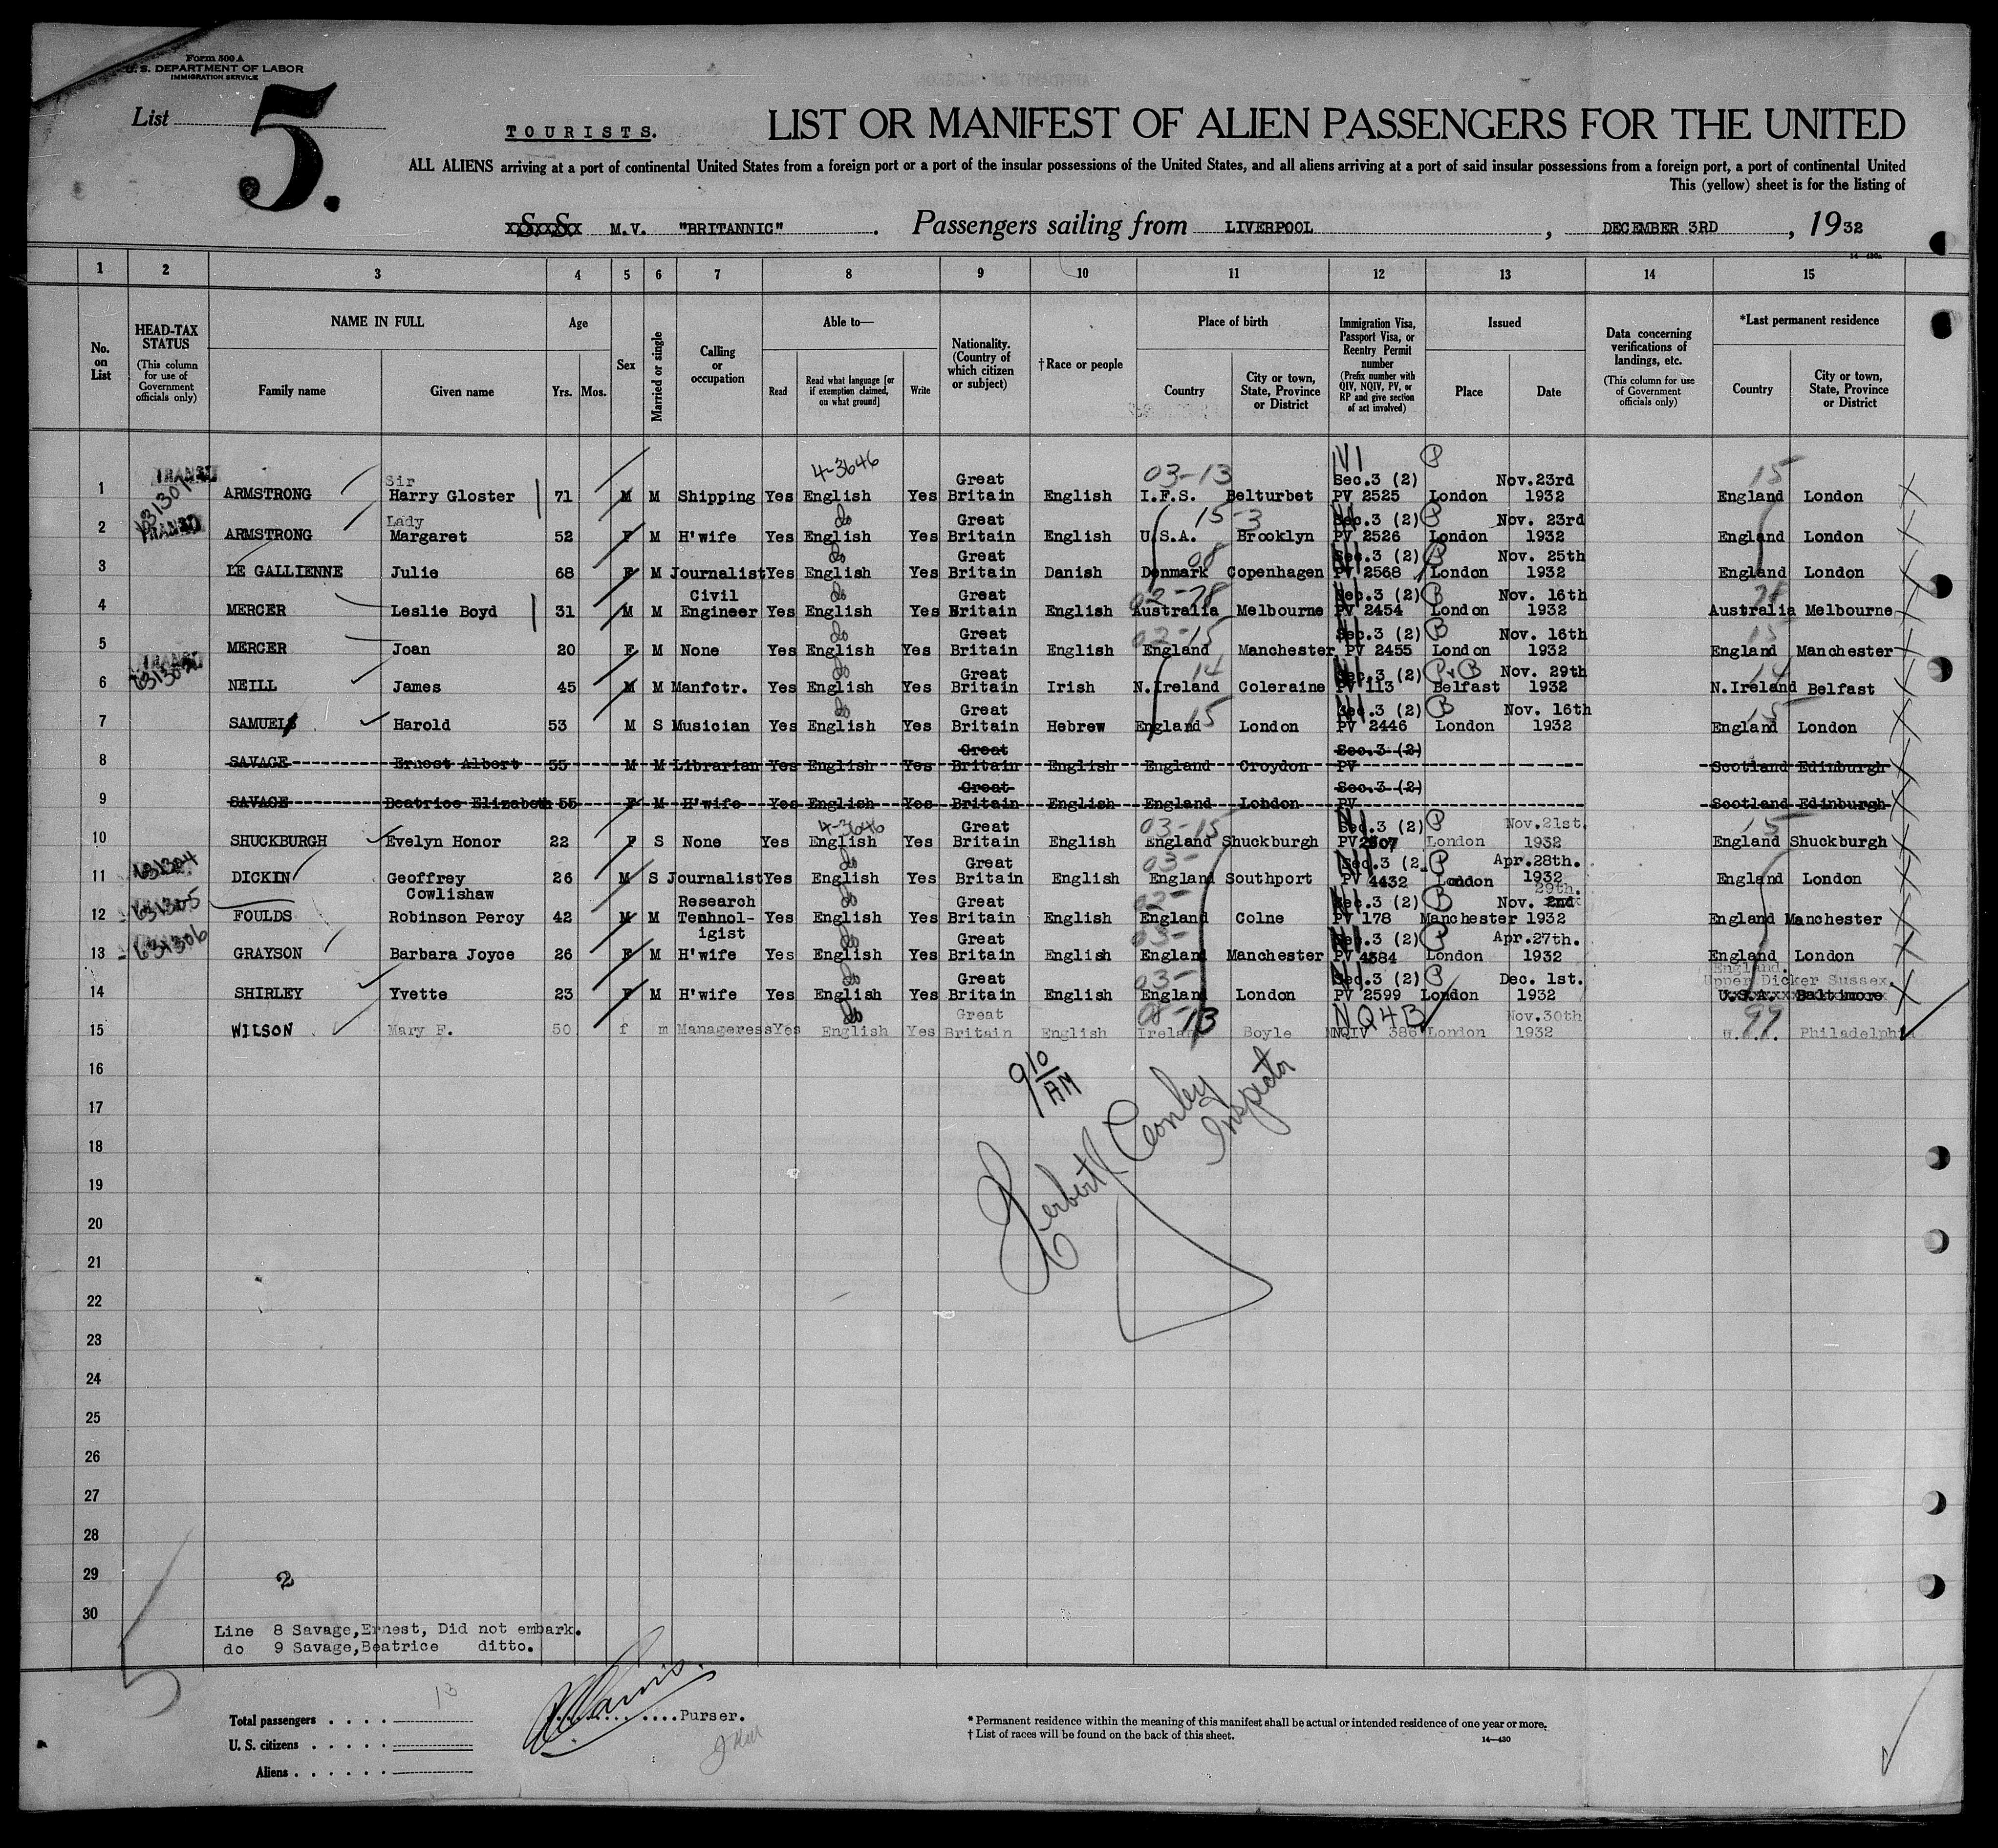 Form 500 A
U. S. DEPARTMENT OF LABOR
IMMIGRATION SERVICE
List 5.
TOURISTS.
LIST OR MANIFEST OF ALIEN PASSENGERS FOR THE UNITED
ALL ALIENS arriving at a port of continental United States from a foreign port or a port of the insular possessions of the United States, and all aliens arriving at a port of said insular possessions from a foreign port, a port of continental United
This (yellow) sheet is for the listing of
S.S. M.V. "BRITANNIC" . Passengers sailing from LIVERPOOL , DECEMBER 3RD , 1932
1 2 3 4 5 6 7 8 9 10 11 12 13 14 15
No. on List
HEAD-TAX STATUS (This column for use of Government officials only)
NAME IN FULL Family name Given name
Age Yrs. Mos.
Sex
Married or single
Calling or occupation
Able to— Read Read what language [or if exemption claimed, on what ground] Write
Nationality. (Country of which citizen or subject)
†Race or people
Place of birth Country City or town, State, Province or District
Immigration Visa, Passport Visa, or Reentry Permit number (Prefix number with QIV, NQIV, PV, or RP and give section of act involved)
Issued Place Date
Data concerning verifications of landings, etc. (This column for use of Government officials only)
*Last permanent residence Country City or town, State, Province or District
TRANSIT Sir 4-3646 Great 03-13 Sec.3 (2) P Nov.23rd 15
1 ARMSTRONG Harry Gloster 71 M M Shipping Yes English Yes Britain English I.F.S. Belturbet PV 2525 London 1932 England London
TRANSIT Lady do Great 15-3 Sec.3 (2) P Nov. 23rd
2 ARMSTRONG Margaret 52 F M H'wife Yes English Yes Britain English U.S.A. Brooklyn PV 2526 London 1932 England London
do Great 08 Sec.3 (2) B Nov. 25th
3 LE GALLIENNE Julie 68 F M Journalist Yes English Yes Britain Danish Denmark Copenhagen PV 2568 London 1932 England London
Civil do Great 02-78 Sec.3 (2) B Nov. 16th
4 MERCER Leslie Boyd 31 M M Engineer Yes English Yes Britain English Australia Melbourne PV 2454 London 1932 Australia Melbourne
do Great 02-15 Sec.3 (2) B Nov. 16th 15
5 MERCER Joan 20 F M None Yes English Yes Britain English England Manchester PV 2455 London 1932 England Manchester
TRANSIT do Great 14 Sec.3 (2) P B Nov. 29th 14
6 NEILL James 45 M M Manfctr. Yes English Yes Britain Irish N.Ireland Coleraine PV 113 Belfast 1932 N.Ireland Belfast
do Great 15 Sec.3 (2) B Nov. 16th 15
7 SAMUEL Harold 53 M S Musician Yes English Yes Britain Hebrew England London PV 2446 London 1932 England London
Great Sec.3 (2)
8 SAVAGE Ernest Albert 55 M M Librarian Yes English Yes Britain English England Croydon PV Scotland Edinburgh
Great Sec.3 (2)
9 SAVAGE Beatrice Elizabeth 55 F M H'wife Yes English Yes Britain English England London PV Scotland Edinburgh
4-3646 Great 03-15 Sec.3 (2) P Nov.21st. 15
10 SHUCKBURGH Evelyn Honor 22 F S None Yes English Yes Britain English England Shuckburgh PV 2507 London 1932 England Shuckburgh
631304 do Great 03- Sec.3 (2 P Apr.28th.
11 DICKIN Geoffrey 26 M S Journalist Yes English Yes Britain English England Southport PV 4432 London 1932 England London
Cowlishaw
631305 Research do Great 02- Sec.3 (2) B Nov. 2nd 29th.
12 FOULDS Robinson Percy 42 M M Technol- Yes English Yes Britain English England Colne PV 178 Manchester 1932 England Manchester
igist
631306 do Great 03- Sec.3 (2) P Apr.27th.
13 GRAYSON Barbara Joyce 26 F M H'wife Yes English Yes Britain English England Manchester PV 4384 London 1932 England London
do Great 03- Sec.3 (2) P Dec. 1st. England. Upper Dicker Sussex.
14 SHIRLEY Yvette 23 F M H'wife Yes English Yes Britain English England London PV 2599 London 1932 U.S.A. Baltimore
do Great 08-13 NQ4B Nov.30th 99
15 WILSON Mary F. 50 f m Manageress Yes English Yes Britain English Ireland Boyle NQIV 386 London 1932 U.S.A. Philadelphia
16
9 10/AM
17
18
Herbert Conley
Inspector
19
20
21
22
23
24
25
26
27
28
29 2
30
Line 8 Savage,Ernest, Did not embark.
do 9 Savage,Beatrice ditto.
Total passengers . . . . 13
U. S. citizens . . . . .
Aliens . . . . . .
Purser.
* Permanent residence within the meaning of this manifest shall be actual or intended residence of one year or more.
† List of races will be found on the back of this sheet.
14—430